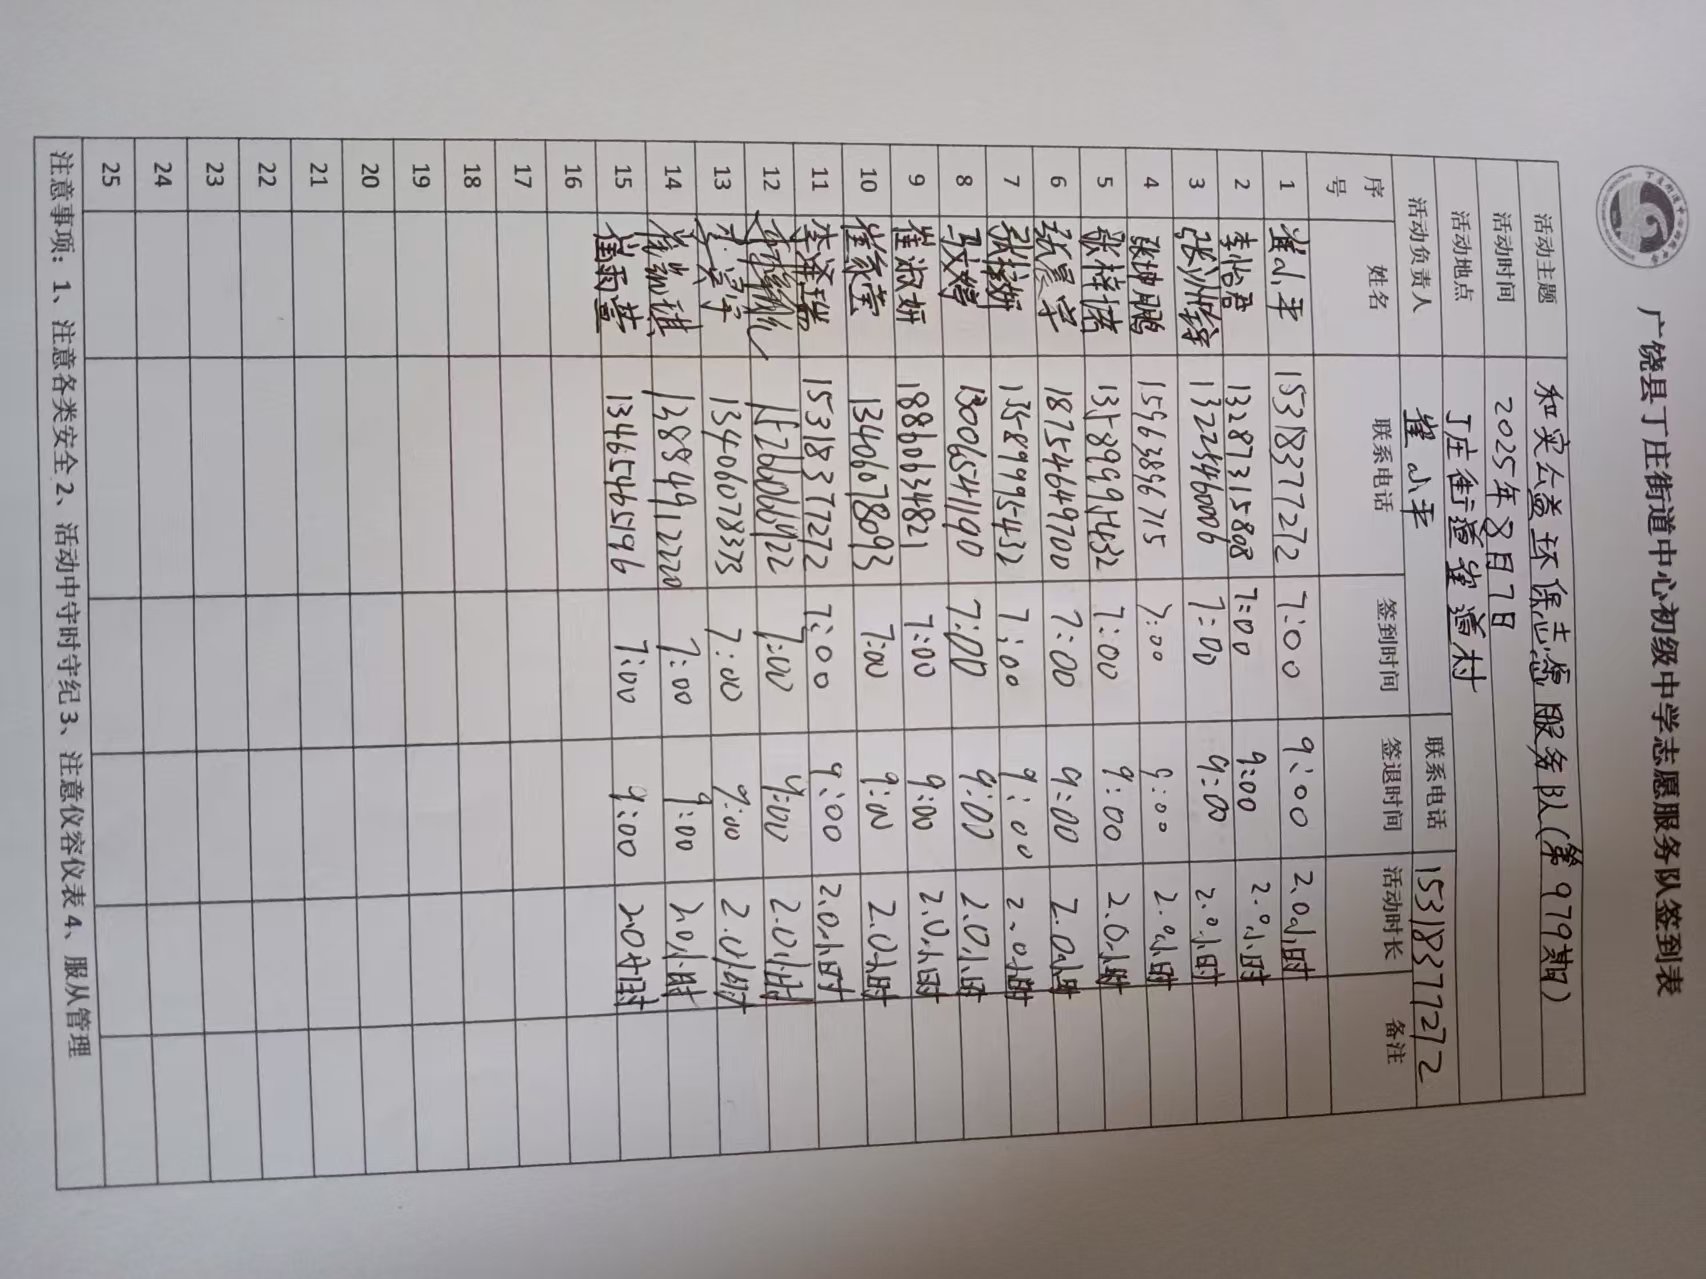 广饶县丁庄街道中心初级中学志愿服务队签到表
活动主题 和实公益环保志愿服务队(第979期)
活动时间 2025年8月7日
活动地点 丁庄街道崔道村
活动负责人 崔小平 联系电话 15318377272
序号 姓名 联系电话 签到时间 签退时间 活动时长 备注
1 崔小平 15318377272 7:00 9:00 2.0小时
2 李怡君 13287315808 7:00 9:00 2.0小时
3 张洲峰 13225460006 7:00 9:00 2.0小时
4 张坤鹏 15963896715 7:00 9:00 2.0小时
5 张梓 13589995432 7:00 9:00 2.0小时
6 张昊宇 18754649700 7:00 9:00 2.0小时
7 张梭妍 13589995432 7:00 9:00 2.0小时
8 13006541190 7:00 9:00 2.0小时
9 崔淑妍 18860634821 7:00 9:00 2.0小时
10 崔家莹 13406078093 7:00 9:00 2.0小时
11 李泽瑞 15318377272 7:00 9:00 2.0小时
12 7:00 9:00 2.0小时
13 13406078373 7:00 9:00 2.0小时
14 琪 13854912220 7:00 9:00 2.0小时
15 崔雨萱 13465465196 7:00 9:00 2.0小时
16
17
18
19
20
21
22
23
24
25
注意事项：1、注意各类安全2、活动中守时守纪3、注意仪容仪表4、服从管理